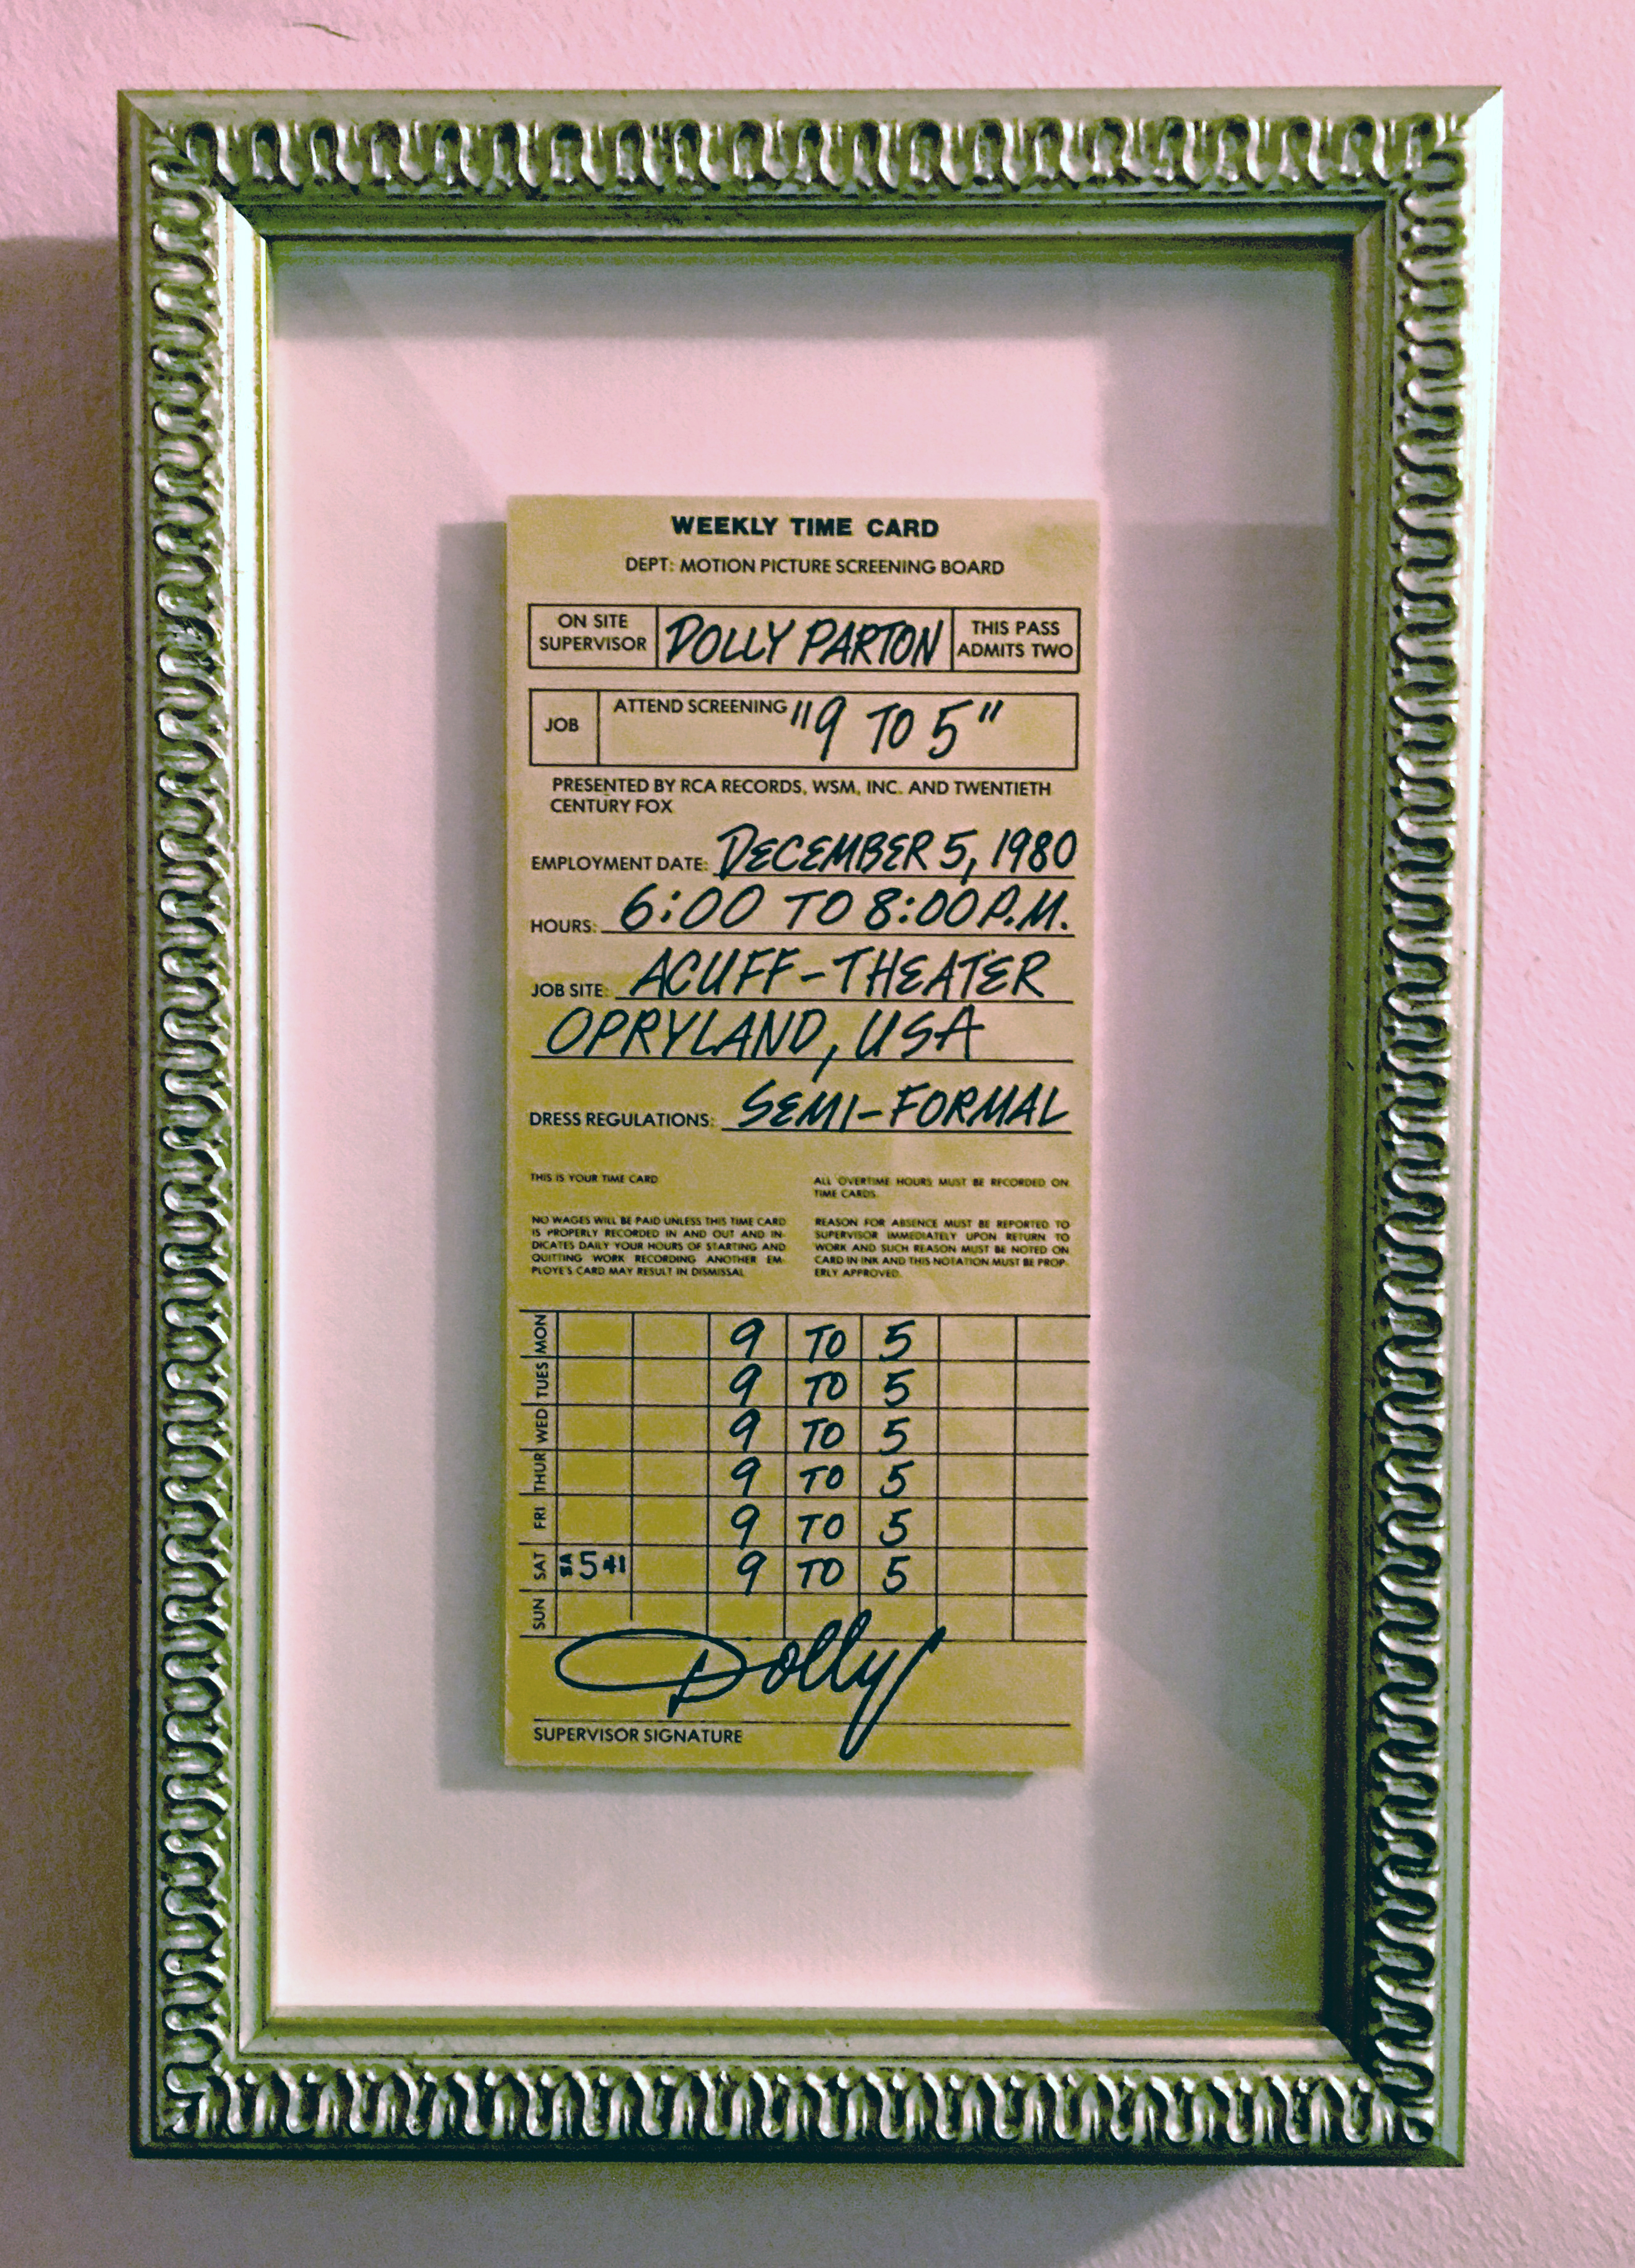 WEEKLY TIME CARD
DEPT: MOTION PICTURE SCREENING BOARD
ON SITE
SUPERVISOR
DOLLY PARTON
THIS PASS
ADMITS TWO
JOB
ATTEND SCREENING "9 TO 5"
PRESENTED BY RCA RECORDS, WSM, INC. AND TWENTIETH
CENTURY FOX
EMPLOYMENT DATE: DECEMBER 5, 1980
HOURS: 6:00 TO 8:00 P.M.
JOB SITE: ACUFF-THEATER
OPRYLAND, USA
DRESS REGULATIONS: SEMI-FORMAL
THIS IS YOUR TIME CARD
NO WAGES WILL BE PAID UNLESS THIS TIME CARD
IS PROPERLY RECORDED IN AND OUT AND IN-
DICATES DAILY YOUR HOURS OF STARTING AND
QUITTING WORK RECORDING ANOTHER EM-
PLOYE'S CARD MAY RESULT IN DISMISSAL
ALL OVERTIME HOURS MUST BE RECORDED ON
TIME CARDS.
REASON FOR ABSENCE MUST BE REPORTED TO
SUPERVISOR IMMEDIATELY UPON RETURN TO
WORK AND SUCH REASON MUST BE NOTED ON
CARD IN INK AND THIS NOTATION MUST BE PROP-
ERLY APPROVED.
MON 9 TO 5
TUES 9 TO 5
WED 9 TO 5
THUR 9 TO 5
FRI 9 TO 5
SAT 5 41 9 TO 5
SUN
Dolly
SUPERVISOR SIGNATURE